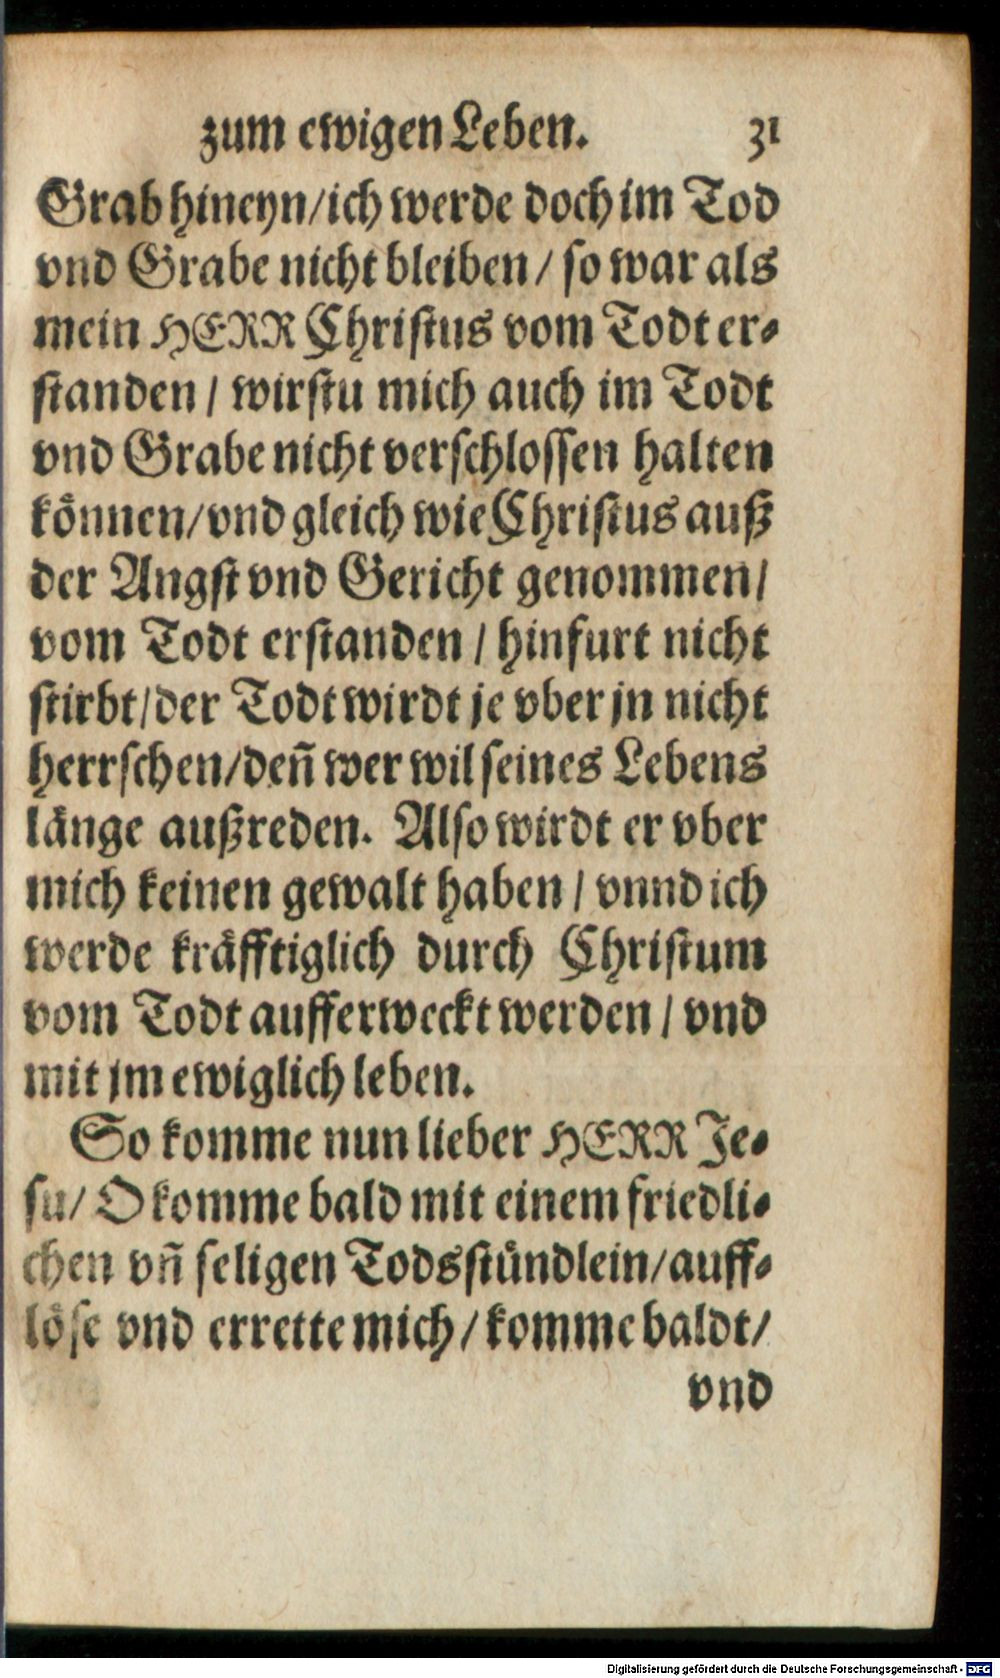 zum ewigen Leben. 31
Grab hineyn/ich werde doch im Tod
vnd Grabe nicht bleiben / so war als
mein HERR Christus vom Todt er-
standen / wirstu mich auch im Todt
vnd Grabe nicht verschlossen halten
können/vnd gleich wie Christus auß
der Angst vnd Gericht genommen/
vom Todt erstanden / hinfurt nicht
stirbt/der Todt wirdt je vber jn nicht
herrschen/deñ wer wil seines Lebens
länge außreden. Also wirdt er vber
mich keinen gewalt haben / vnnd ich
werde kräfftiglich durch Christum
vom Todt aufferweckt werden / vnd
mit jm ewiglich leben.
So komme nun lieber HERR Je-
su/ O komme bald mit einem friedli-
chen vñ seligen Todsstündlein/auff-
löse vnd errette mich/komme baldt/
vnd
Digitalisierung gefördert durch die Deutsche Forschungsgemeinschaft - DFG